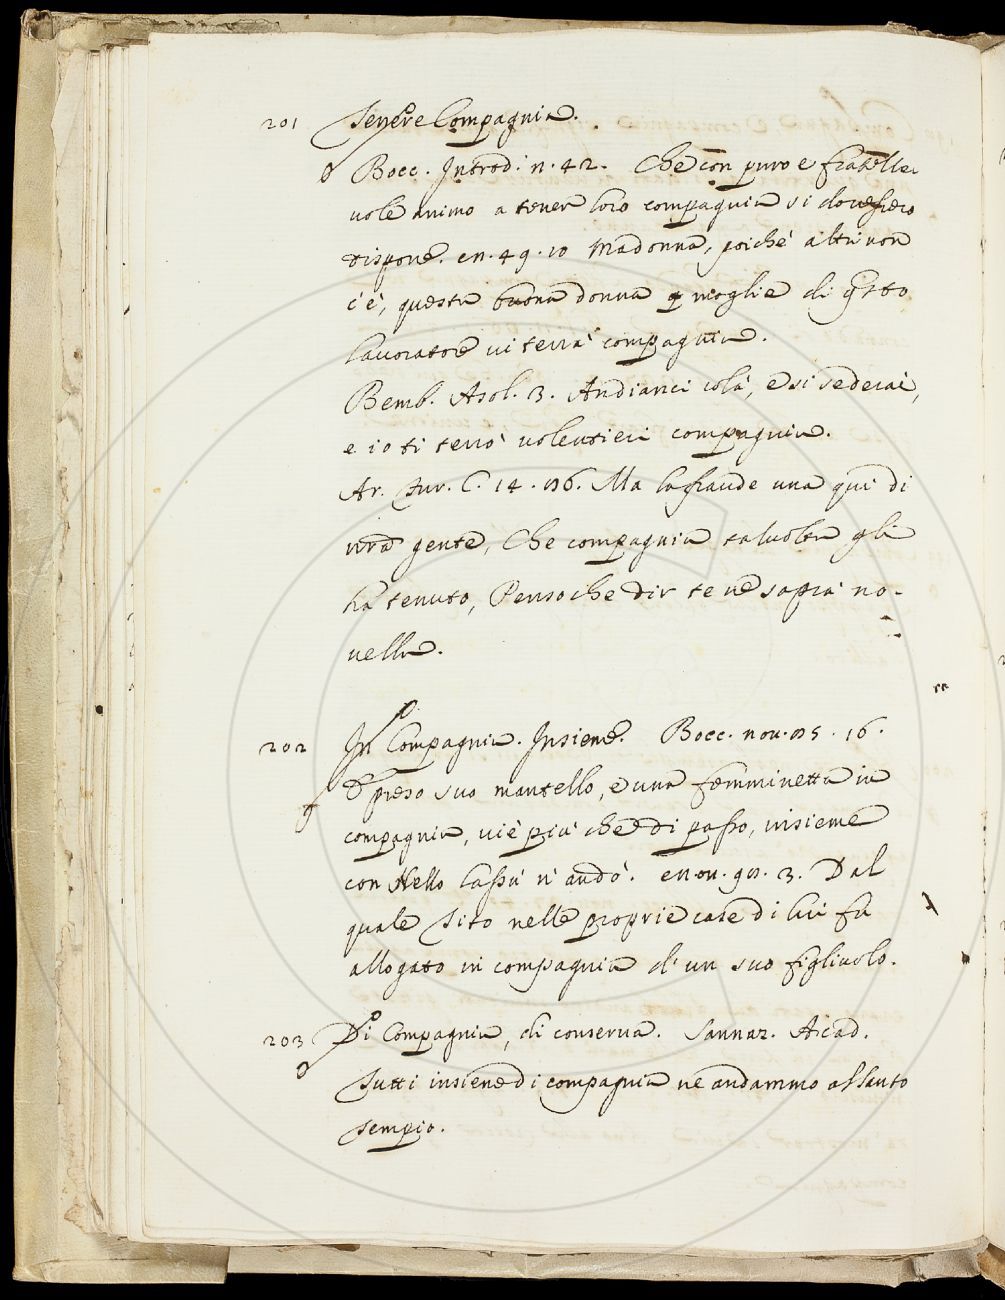 201 Tenere Compagnia.
Bocc. Introd. n. 42. Che con puro e fratelle
vole animo a tener loro compagnia si dovessero
disporre. en. 49. 10 Madonna, poiche altri non
c'è, questa buona donna moglie di questo
lavoratore vi terrà compagnia.
Bemb. Asol. 3. Andianci colà, e si sederai,
e io ti terrò volentieri compagnia.
Ar. Fur. C. 14. Ma la fraude una qui di
vra gente, Che compagnia talvolta gli
ha tenuto, Penso che dir te ne saprà no-
vella.
202 In Compagnia. Insieme. Bocc. nov. 16.
E preso suo mantello, e una femminetta in
compagnia, vie più che di passo, insieme
con Nello lassù n'andò. en. 3. Dal
quale Tito nelle proprie case di lui fu
allogato in compagnia d'un suo figliuolo.
203 Di Compagnia, di conserva. Sannaz. Arcad.
Tutti insieme di compagnia ne andammo al santo
tempio.